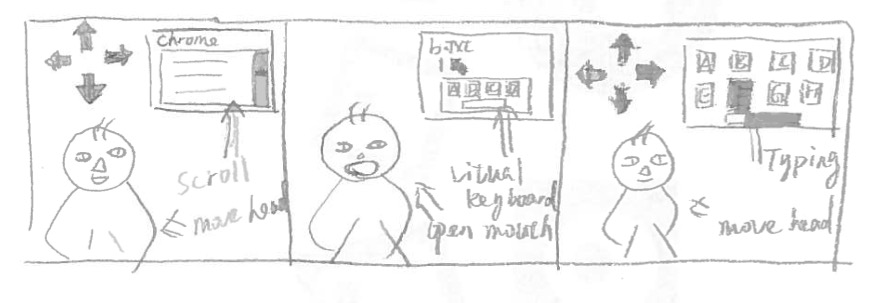 chrome
scroll
move head
b.txt
A B C D
Vitual
keyboard
Open mouth
A B C D
E G H
Typing
move head